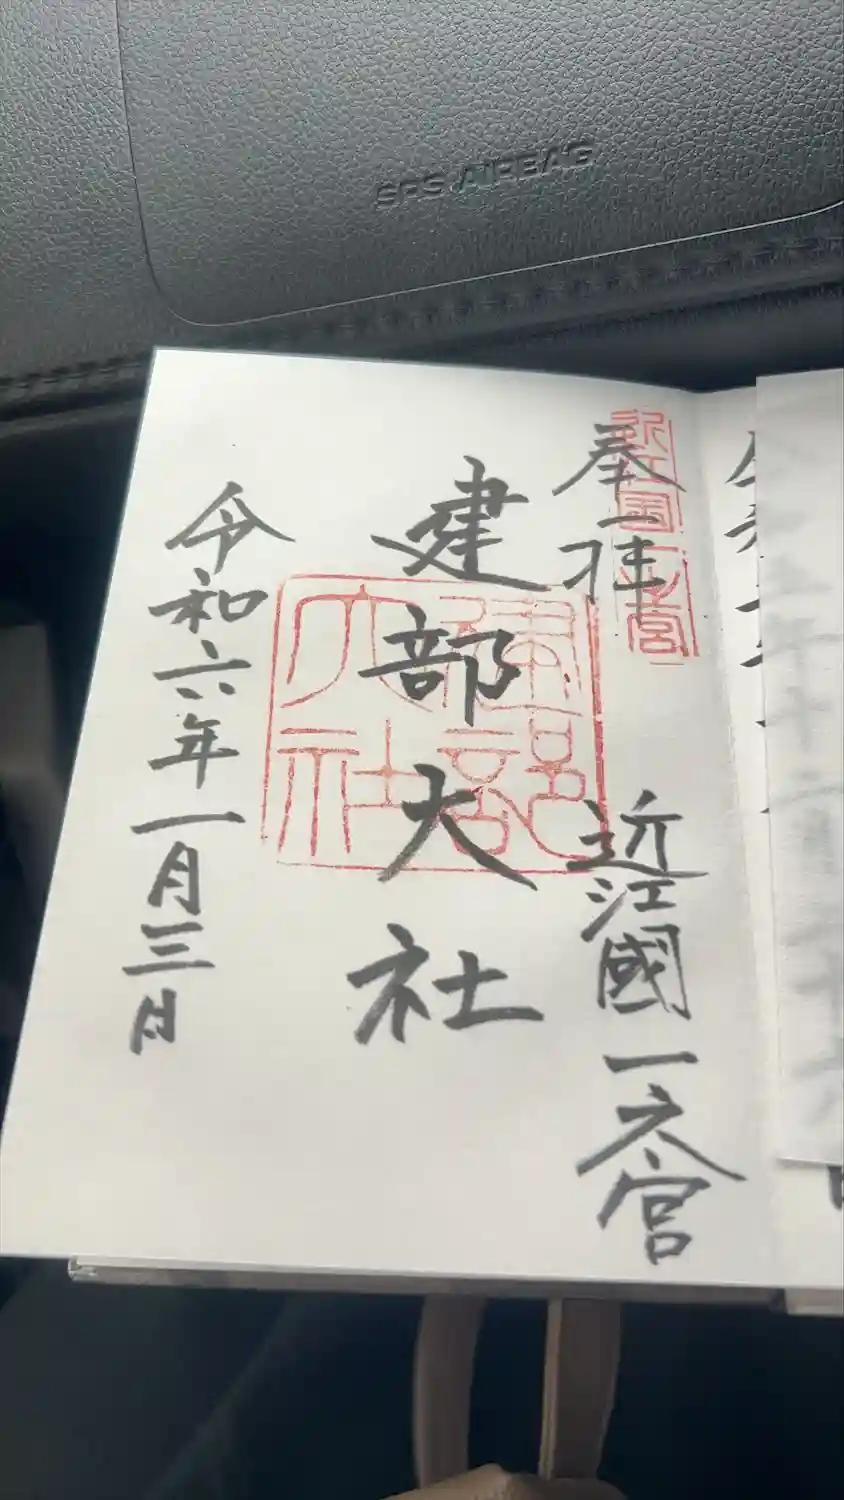 SRS AIRBAG
奉拝
近江國一之宮
建部大社
令和六年一月三日
近江国一之宮
建部大社